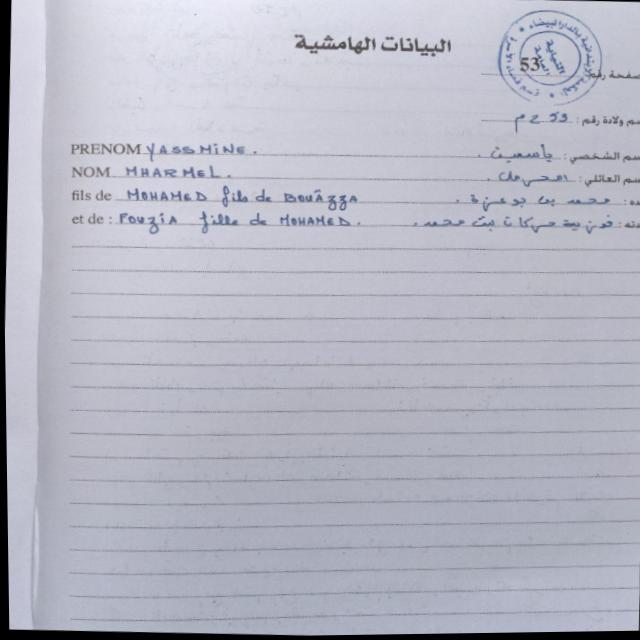 البيانات الهامشية
صفحة رقم 53
رسم ولادة رقم : 53
PRENOM YASSMINE. الاسم الشخصي : ياسمين.
NOM MHARMEL. الاسم العائلي :
fils de MOHAMED fils de BOUÂZZA محمد بن بوعزة.
et de : FOUZIA fille de MOHAMED. فوزية بركات بنت محمد.